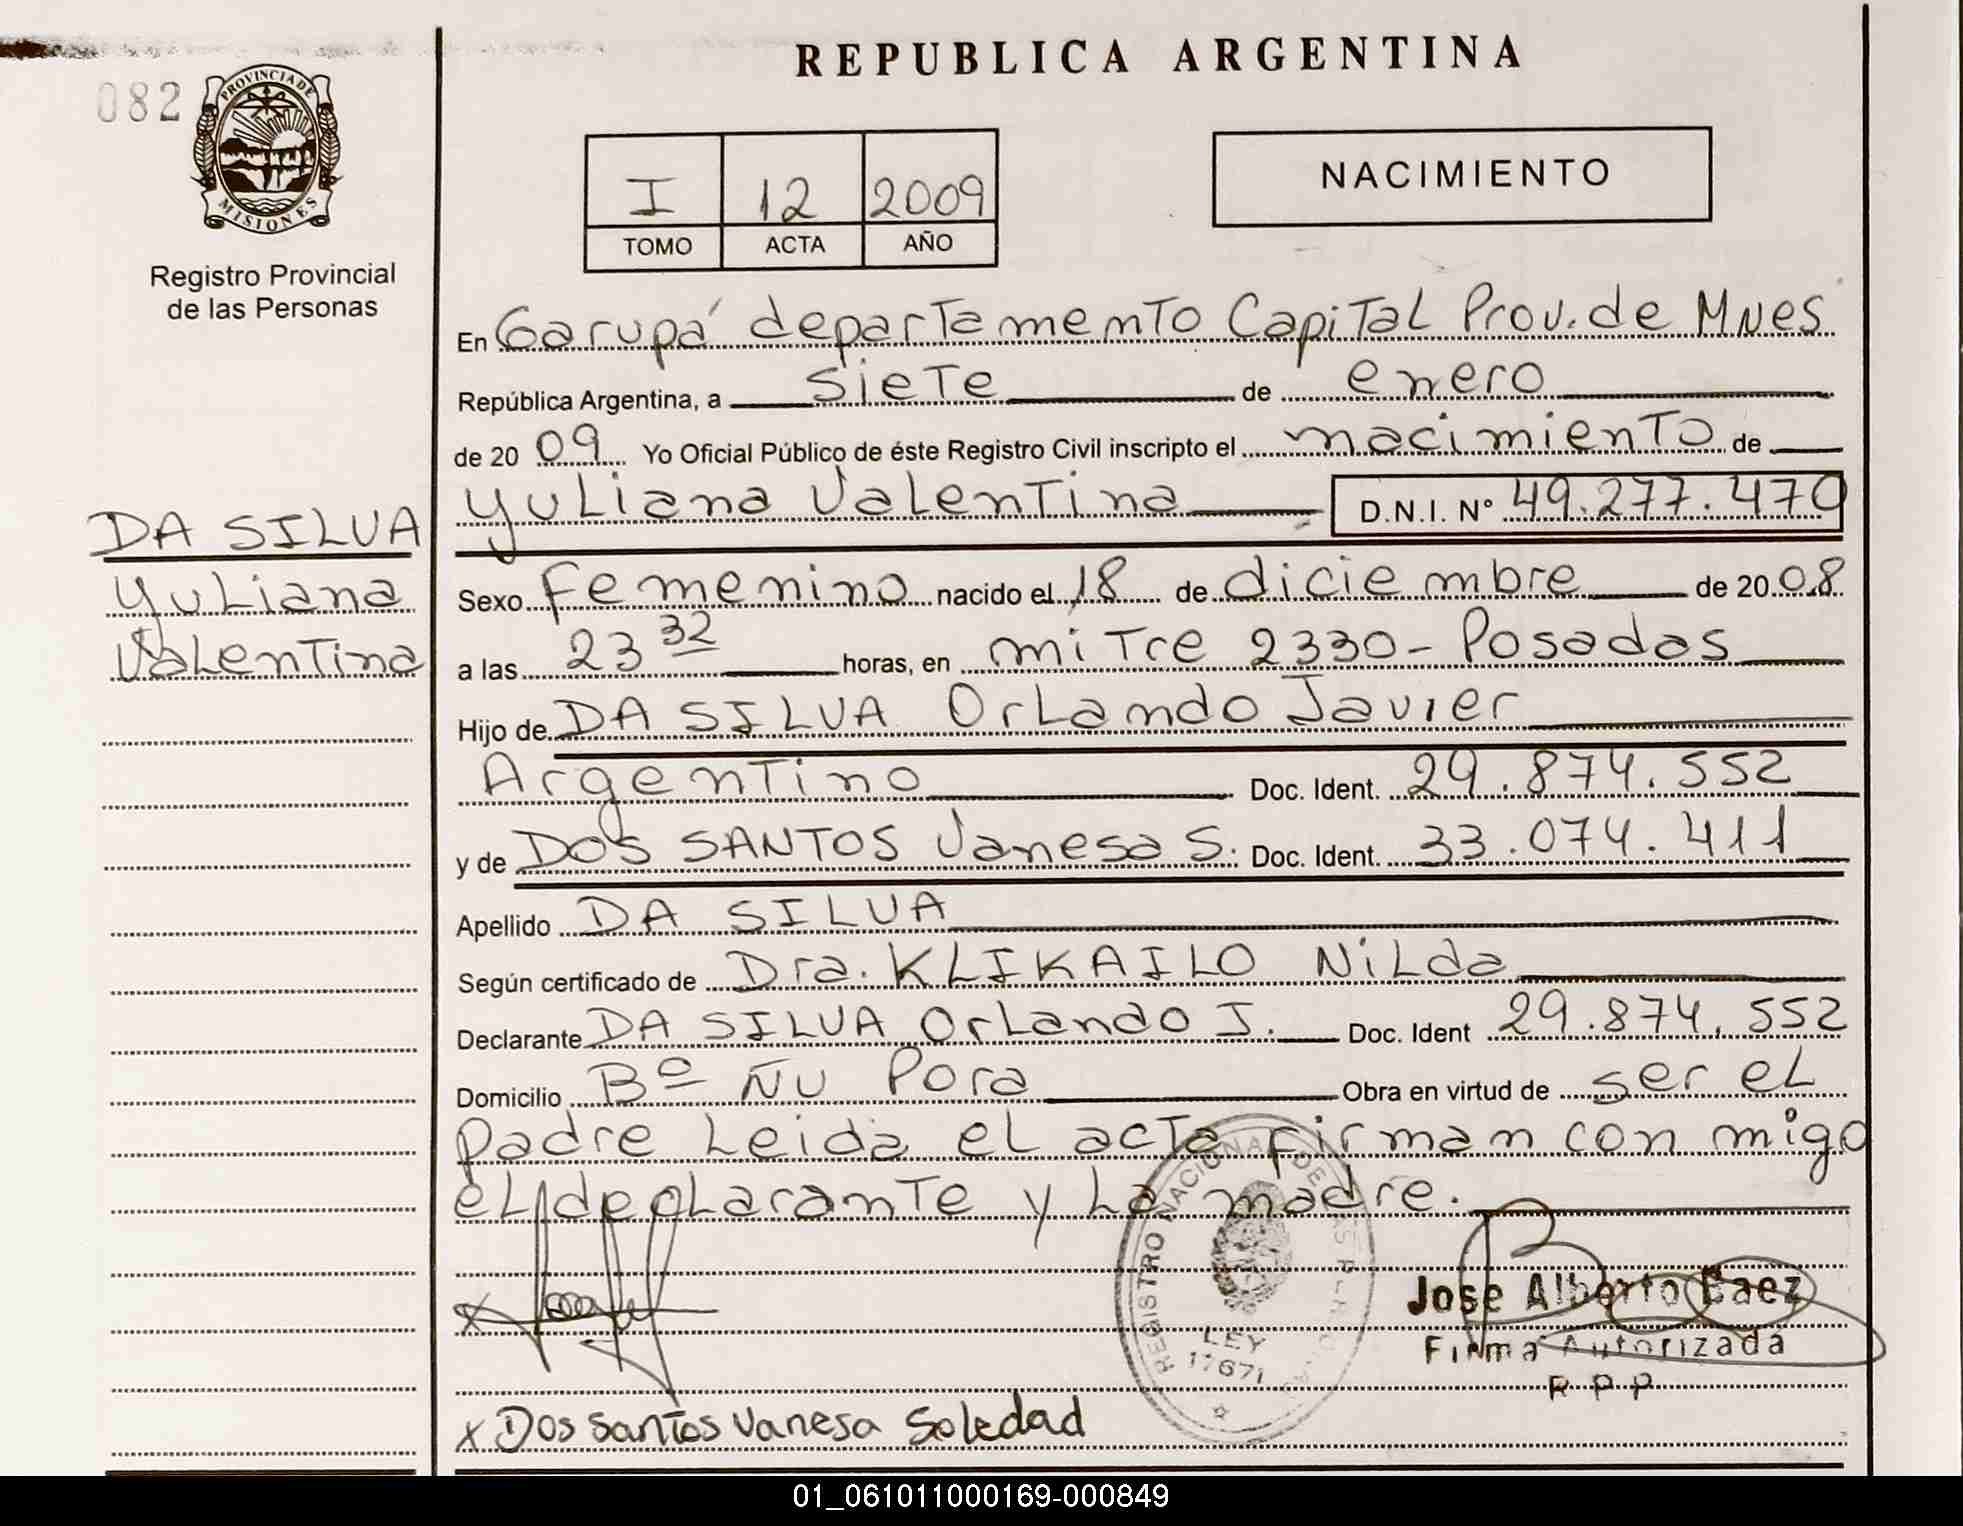 REPUBLICA ARGENTINA
082
PROVINCIA DE MISIONES
Registro Provincial
de las Personas
I 12 2009
TOMO ACTA AÑO
NACIMIENTO
DA SILVA
Yuliana
Valentina
En Garupá departamento Capital Prov. de Mnes
República Argentina, a siete de enero
de 20 09 Yo Oficial Público de éste Registro Civil inscripto el nacimiento de
Yuliana Valentina D.N.I. Nº 49.277.470
Sexo Femenino nacido el 18 de diciembre de 20 08
a las 23 32 horas, en mitre 2330 - Posadas
Hijo de DA SILVA Orlando Javier
Argentino Doc. Ident. 29.874.552
y de DOS SANTOS Vanesa S. Doc. Ident. 33.074.411
Apellido DA SILVA
Según certificado de Dra. KLIKAILO Nilda
Declarante DA SILVA Orlando J. Doc. Ident 29.874.552
Domicilio Bº Ñu Pora Obra en virtud de ser el
padre Leida el acta firman con migo
el declarante y la madre.
REGISTRO NACIONAL DE LAS PERSONAS
LEY
17671
Jose Alberto Baez
Firma Autorizada
R P P
x Dos Santos Vanesa Soledad
01_061011000169-000849